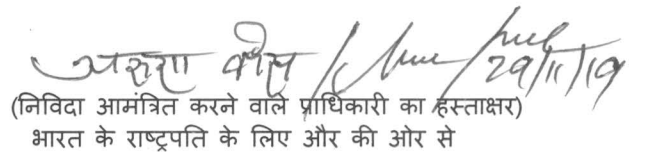 29/11/19
(निविदा आमंत्रित करने वाले प्राधिकारी का हस्ताक्षर)
भारत के राष्ट्रपति के लिए और की ओर से